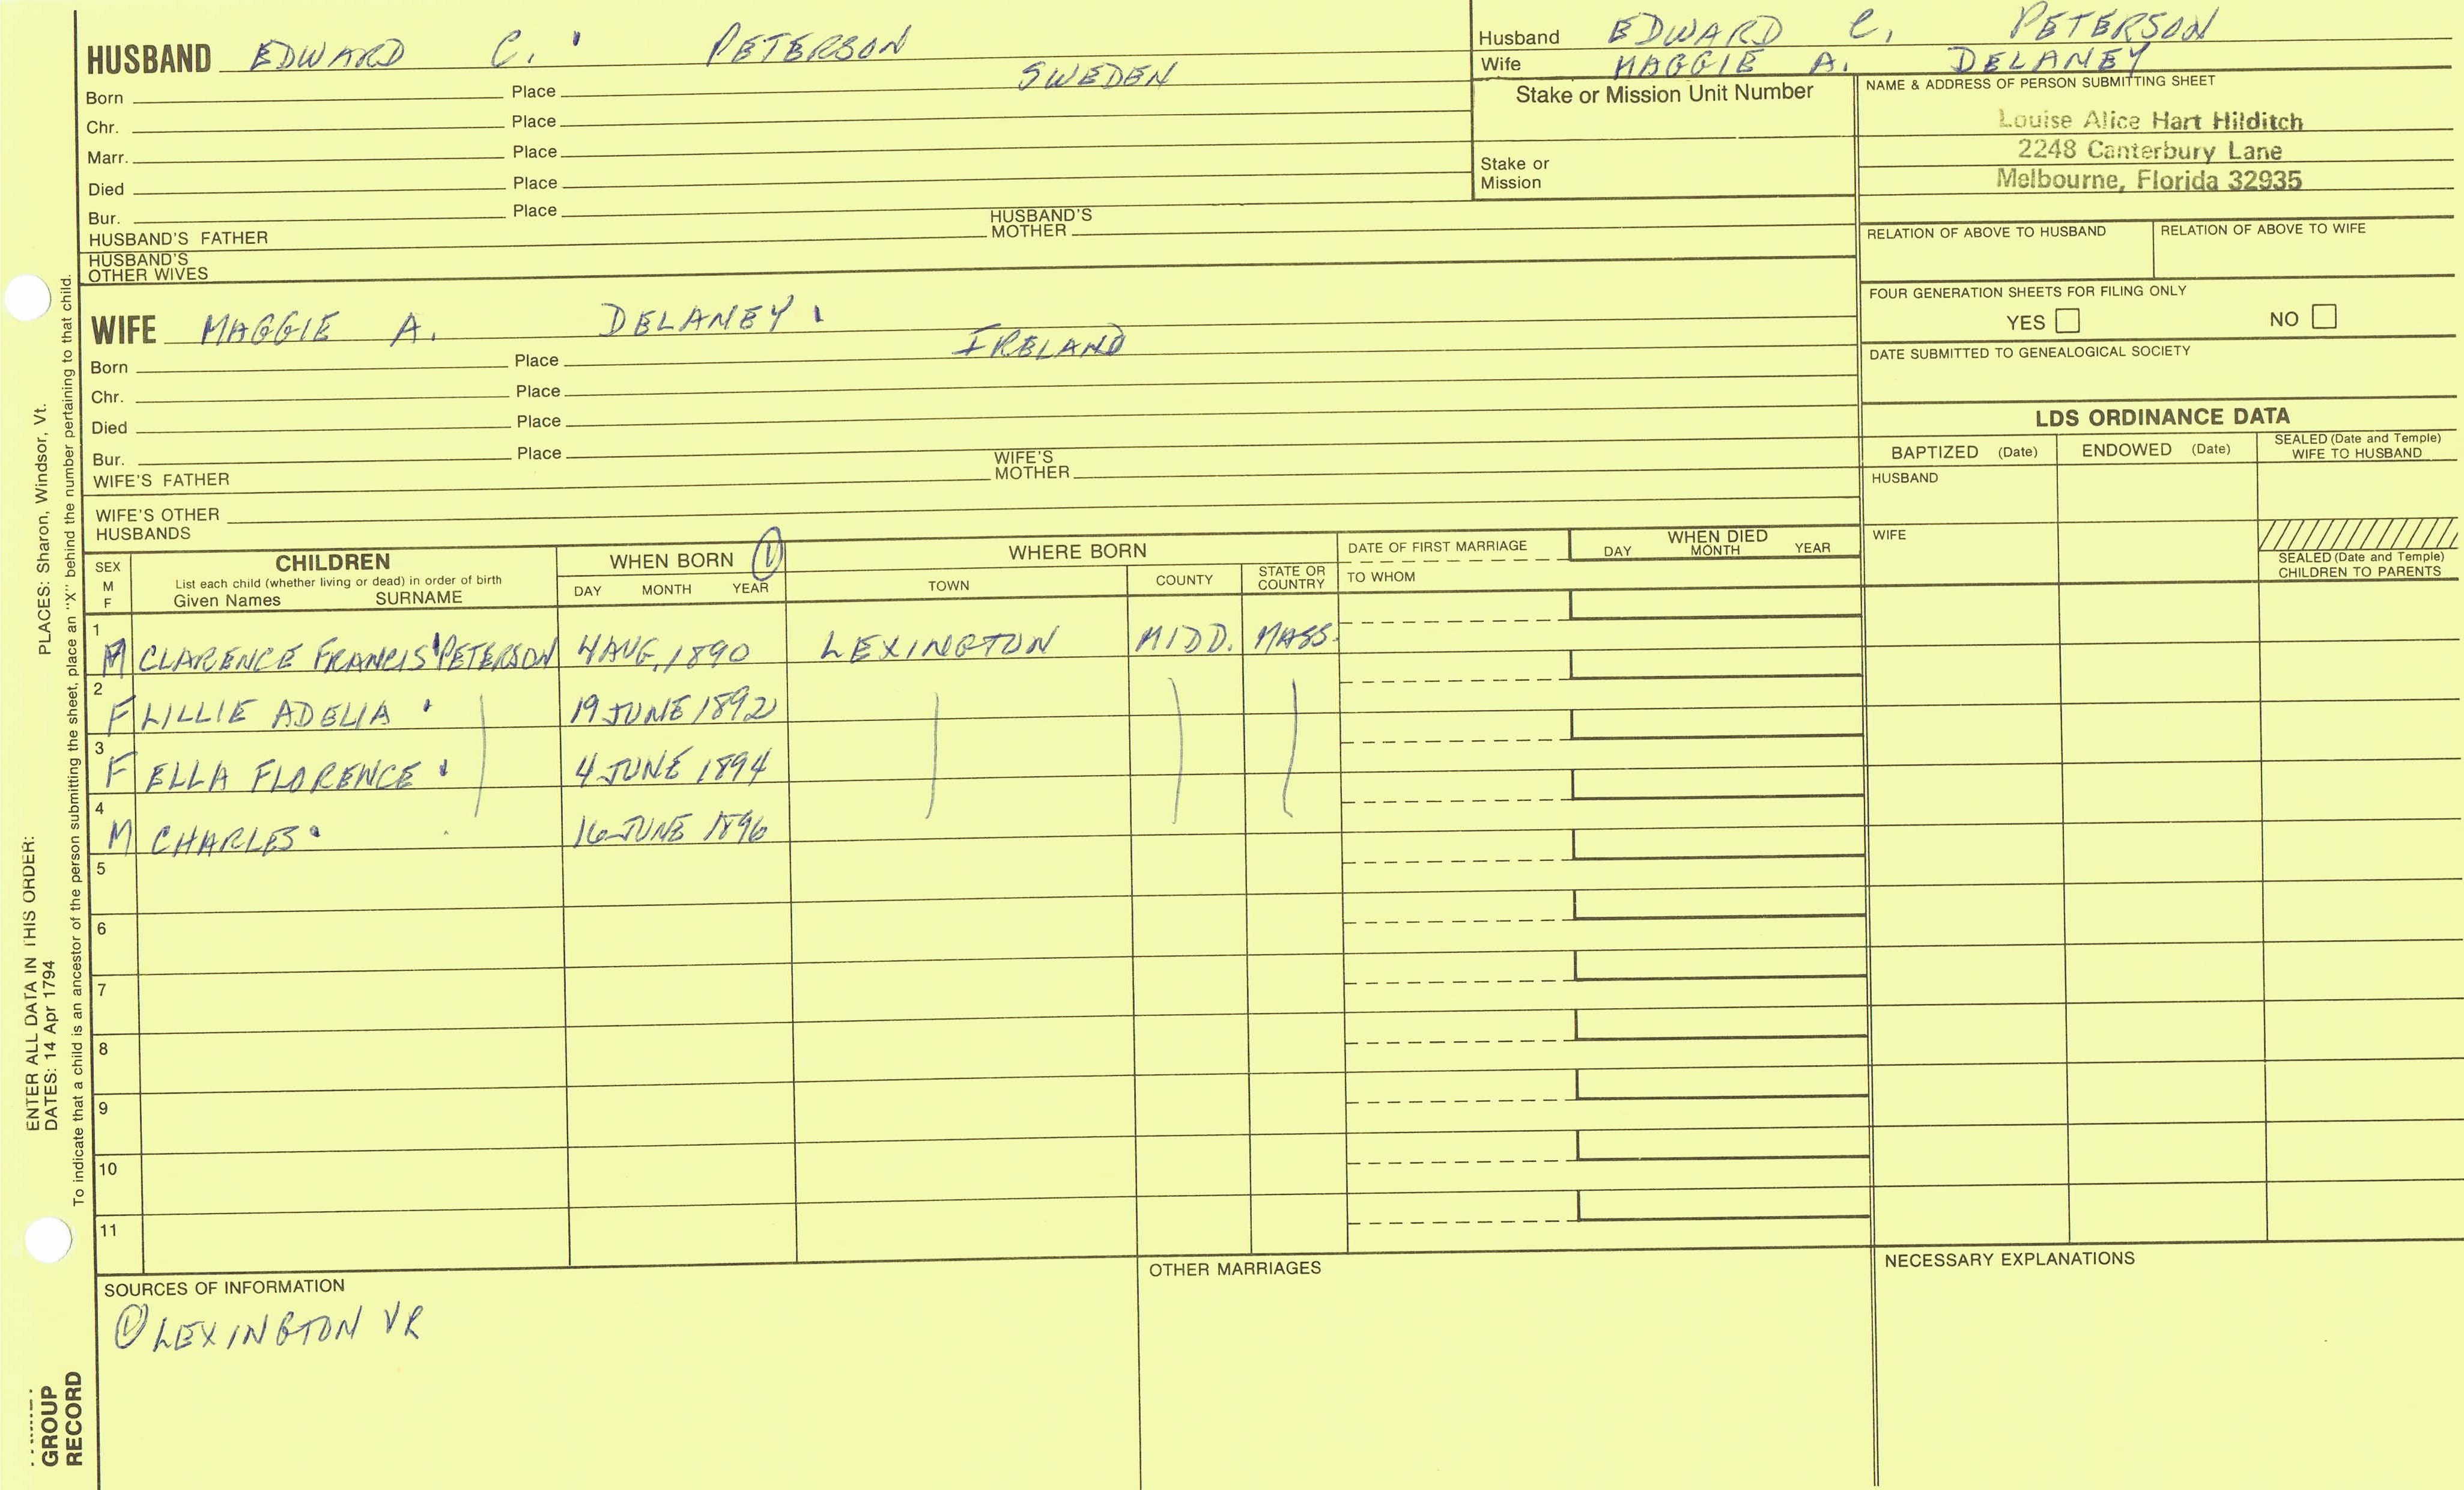 HUSBAND EDWARD C. PETERSON
Born Place SWEDEN
Chr. Place
Marr. Place
Died Place
Bur. Place
HUSBAND'S FATHER HUSBAND'S MOTHER
HUSBAND'S OTHER WIVES
Husband EDWARD C. PETERSON
Wife MAGGIE A. DELANEY
Stake or Mission Unit Number
Stake or Mission
NAME & ADDRESS OF PERSON SUBMITTING SHEET
Louise Alice Hart Hilditch
2248 Canterbury Lane
Melbourne, Florida 32935
RELATION OF ABOVE TO HUSBAND RELATION OF ABOVE TO WIFE
FOUR GENERATION SHEETS FOR FILING ONLY
YES NO
DATE SUBMITTED TO GENEALOGICAL SOCIETY
WIFE MAGGIE A. DELANEY
Born Place IRELAND
Chr. Place
Died Place
Bur. Place
WIFE'S FATHER WIFE'S MOTHER
WIFE'S OTHER HUSBANDS
LDS ORDINANCE DATA
BAPTIZED (Date) ENDOWED (Date) SEALED (Date and Temple) WIFE TO HUSBAND
HUSBAND
WIFE
SEALED (Date and Temple) CHILDREN TO PARENTS
SEX M F
CHILDREN
List each child (whether living or dead) in order of birth
Given Names SURNAME
WHEN BORN ①
DAY MONTH YEAR
WHERE BORN
TOWN COUNTY STATE OR COUNTRY
DATE OF FIRST MARRIAGE
TO WHOM
WHEN DIED
DAY MONTH YEAR
1 M CLARENCE FRANCIS PETERSON 4 AUG, 1890 LEXINGTON MIDD. MASS.
2 F LILLIE ADELIA 19 JUNE 1892
3 F ELLA FLORENCE 4 JUNE 1894
4 M CHARLES 16 JUNE 1896
5
6
7
8
9
10
11
SOURCES OF INFORMATION
① LEXINGTON VR
OTHER MARRIAGES
NECESSARY EXPLANATIONS
ENTER ALL DATA IN THIS ORDER:
DATES: 14 Apr 1794
PLACES: Sharon, Windsor, Vt.
To indicate that a child is an ancestor of the person submitting the sheet, place an "X" behind the number pertaining to that child.
GROUP
RECORD